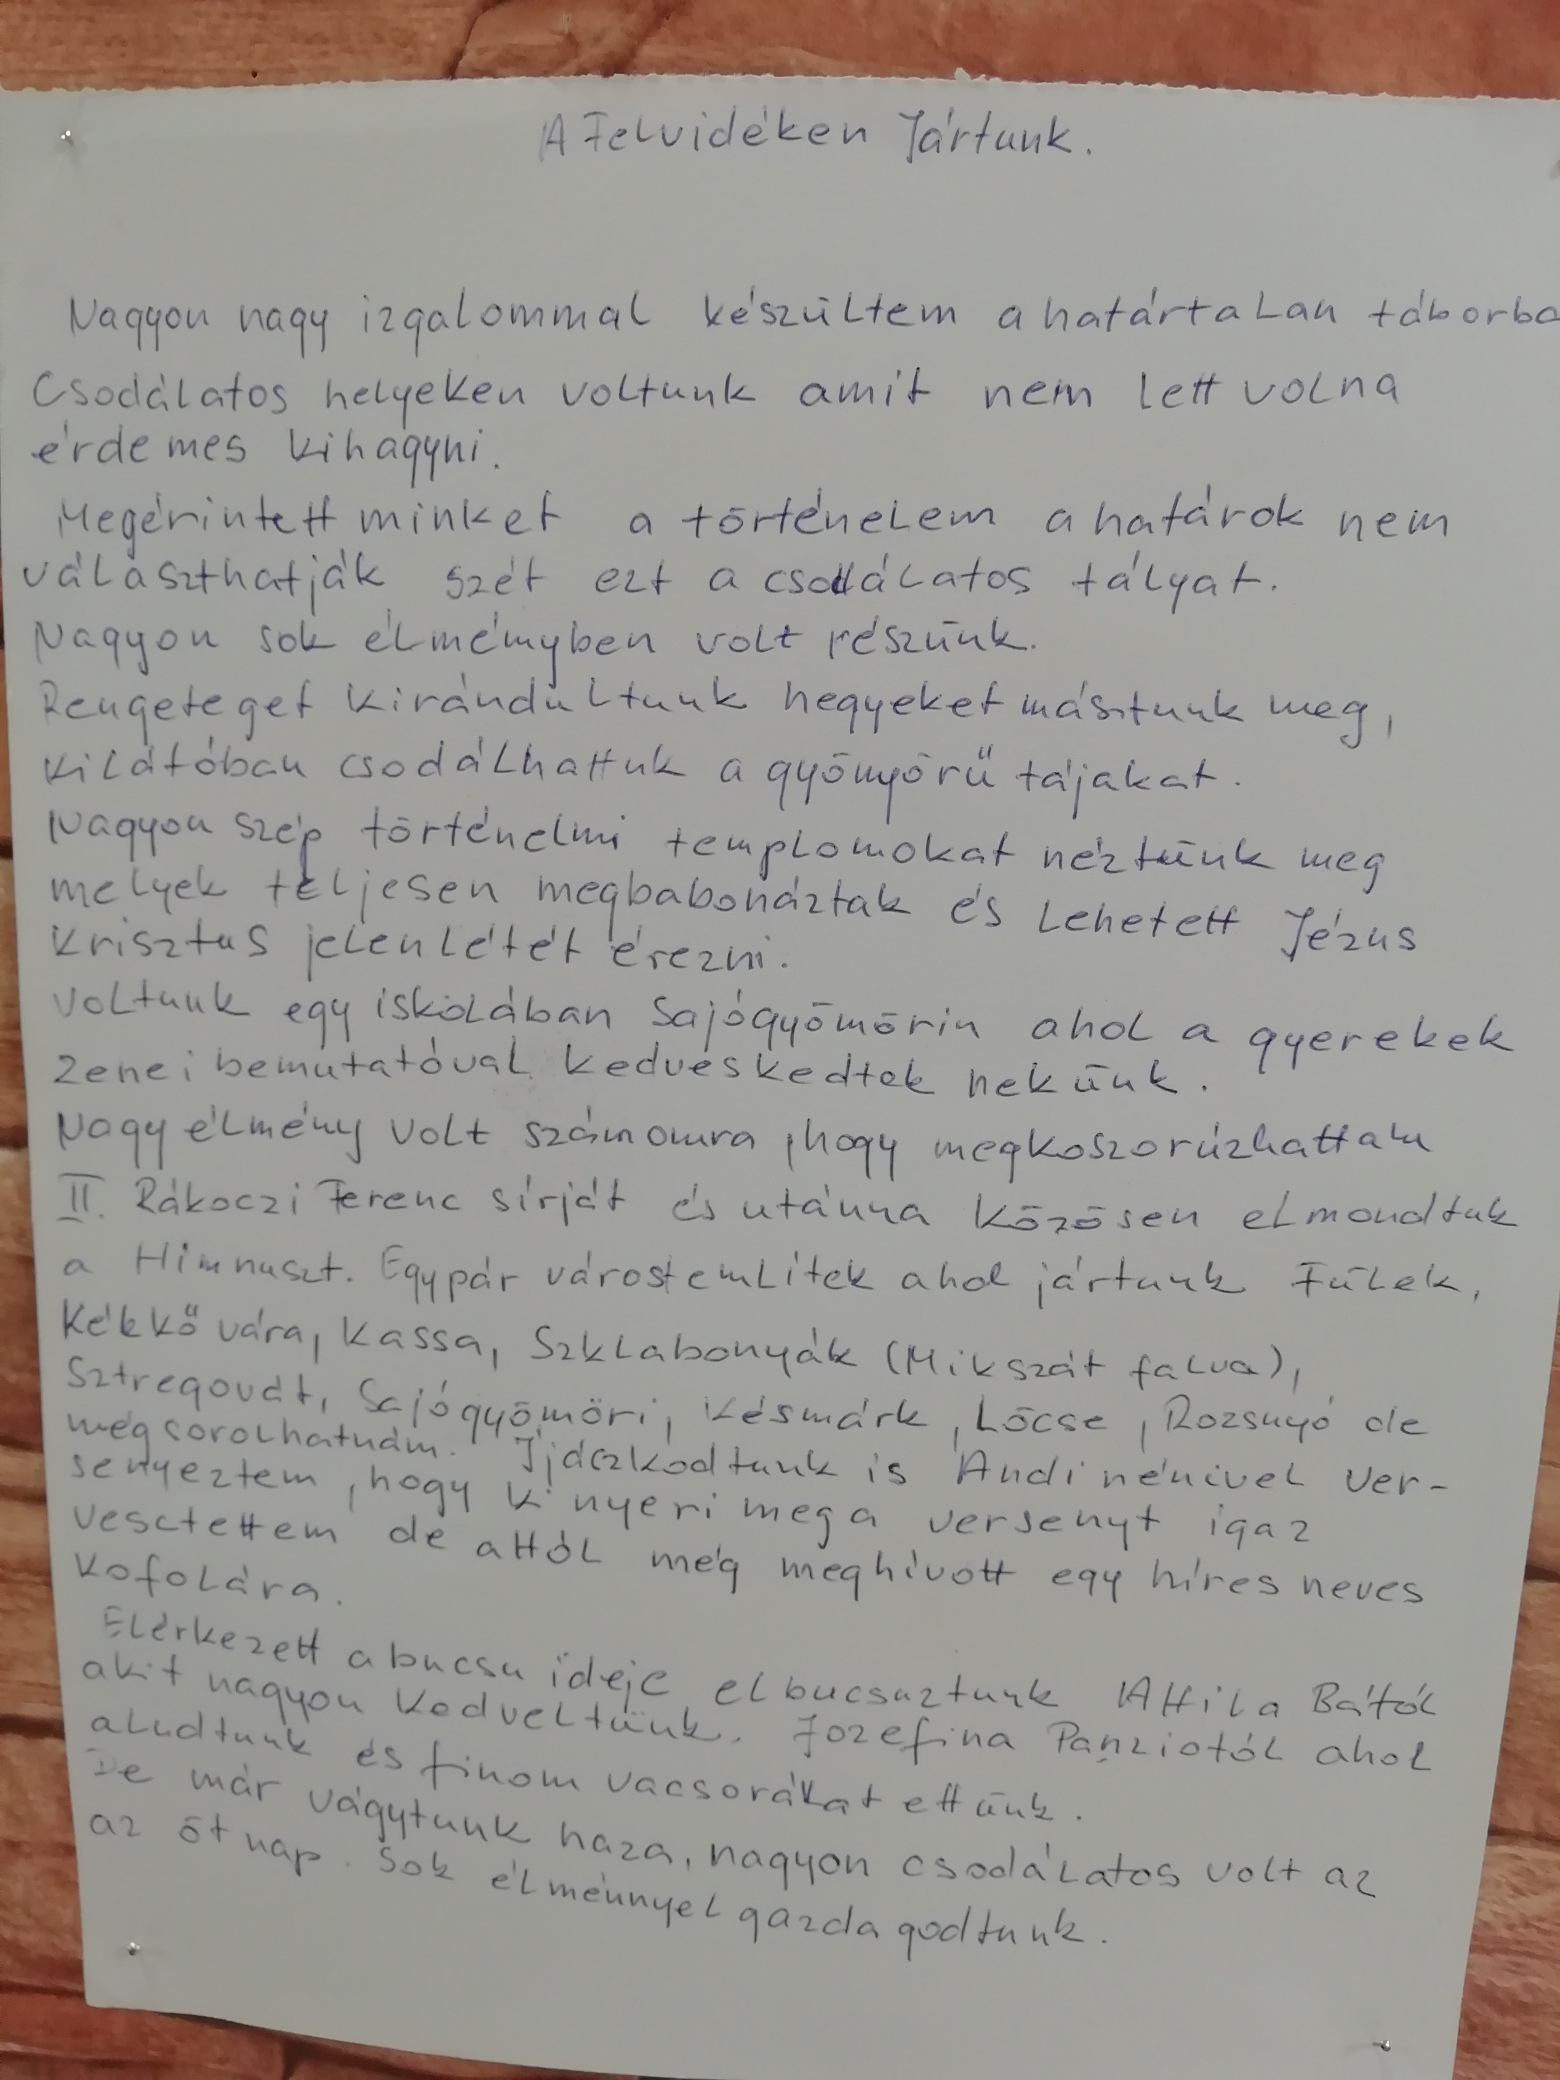 A Felvidéken Jártunk.
Nagyon nagy izgalommal készültem a határtalan táborba
Csodálatos helyeken voltunk amit nem lett volna
érdemes kihagyni.
Megérintett minket a történelem a határok nem
választhatják szét ezt a csodálatos tályat.
Nagyon sok élményben volt részünk.
Rengeteget kirándultunk hegyeket másztunk meg,
kilátóban csodálhattuk a gyönyörű tájakat.
Nagyon szép történelmi templomokat néztünk meg
melyek teljesen megbabonáztak és lehetett Jézus
Krisztus jelenlétét érezni.
Voltunk egy iskolában Sajógyömörin ahol a gyerekek
zenei bemutatóval kedveskedtek nekünk.
Nagy élmény volt számomra, hogy megkoszorúzhattam
II. Rákoczi Ferenc sírját és utánna közösen elmondtuk
a Himnuszt. Egypár várost emlitek ahol jártunk Fülek,
Kékkő vára, Kassa, Szklabonyák (Mikszát falva),
Sztregovát, Sajógyömöri, Késmárk, Lőcse, Rozsnyó de
még sorolhatnám. Íjászkodtunk is Andi nénivel ver-
senyeztem, hogy ki nyeri meg a versenyt igaz
vesztettem de attól még meghívott egy híres neves
Kofolára.
Elérkezett a bucsu ideje elbucsuztunk Attila Bától
akit nagyon kedveltünk. Jozefina Panziotól ahol
aludtunk és finom vacsorákat ettünk.
De már vágytunk haza, nagyon csodálatos volt az
az öt nap. Sok élménnyel gazdagodtunk.